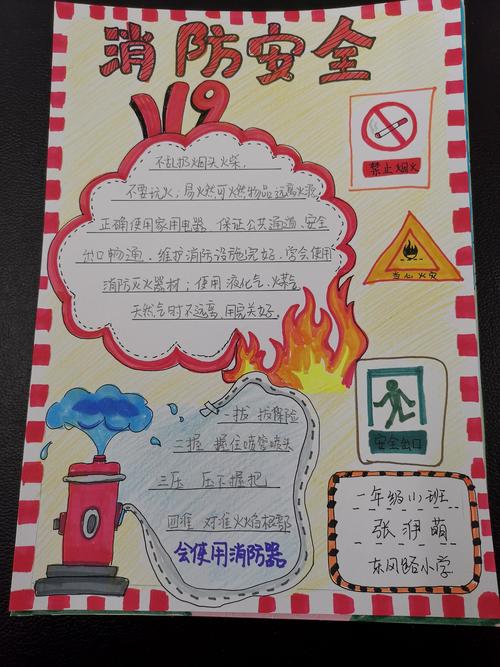 消防安全
119
不乱扔烟头火柴,
不要玩火,易燃可燃物品远离火源,
正确使用家用电器、保证公共通道、安全
出口畅通、维护消防设施完好,学会使用
消防灭火器材;使用液化气、煤气
天然气时不远离,用完关好.
禁止烟火
当心火灾
安全出口
一拔 拔保险
二握 握住喷管喷头
三压 压下握把
四准 对准火焰根部
会使用消防器
一年级11班
张伊萌
东风路小学